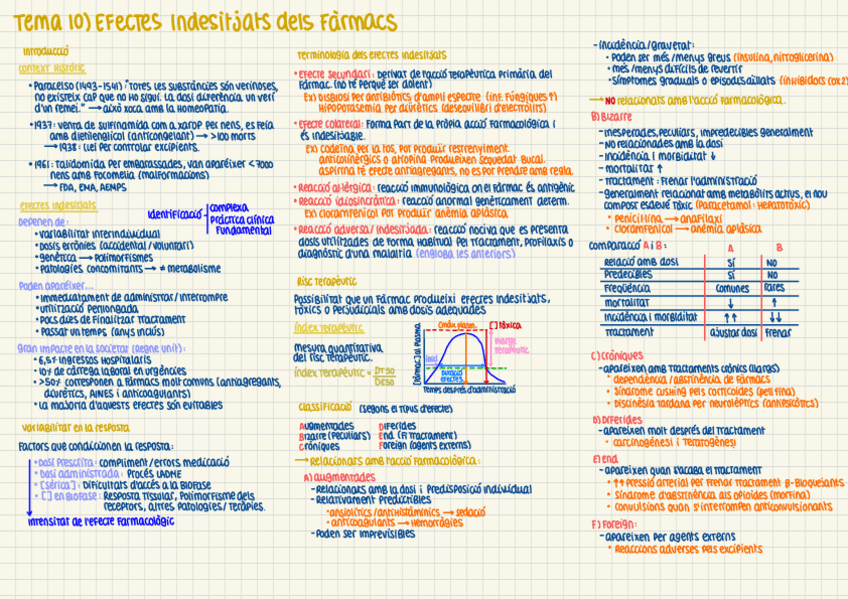 Tema 10) Efectes Indesitjats dels Fàrmacs
Introducció
Context Històric
• Paracelso (1493-1541) "Totes les substàncies són verinoses,
no existeix cap que no ho sigui. La dosi diferència un verí
d'un remei." → això xoca amb la Homeopatia.
• 1937: venta de sulfanamida com a xarop per nens, es feia
amb dietilenglicol (anticongelant) → >100 morts
→ 1938: Llei per controlar excipients.
• 1961: Talidomida per embarassades, van aparèixer <7000
nens amb focomelia (malformacions)
→ FDA, EMA, AEMPS
efectes indesitjats
Identificació
complexa
Pràctica clínica
Fundamental
Depenen de:
• Variabilitat interindividual
• Dosis errònies (accidental / voluntari)
• genètica → polimorfismes
• Patologies concomitants → ≠ metabolisme
Poden aparèixer...
• Immediatament de administrar/interrompre
• utilització perllongada
• Pocs dies de finalitzar tractament
• Passat un temps (anys inclús)
Gran impacte en la societat (Regne Unit):
• 6,5% ingressos hospitalaris
• 10% de càrrega laboral en urgències
• >50% corresponen a fàrmacs molt comuns (antiagregants,
diürètics, AINES i anticoagulants)
• La majoria d'aquests efectes són evitables
Variabilitat en la resposta
Factors que condicionen la resposta:
• Dosi prescrita: compliment/errors medicació
• Dosi administrada: Procés LADME
• [sèrica]: Dificultats d'accés a la biofase
• [ ] en Biofase: Resposta tisular, Polimorfisme dels
receptors, altres patologies/Teràpies.
Intensitat de l'efecte farmacològic
Terminologia dels efectes indesitjats
• Efecte secundari: Derivat de l'acció terapèutica primària del
fàrmac. (no té perquè ser dolent)
Ex) Disbiosi per antibiòtics d'ampli espectre (inf. Fúngiques ↑)
Hipopotasemia per diürètics (desequilibri d'electròlits)
• Efecte colateral: Forma part de la pròpia acció farmacològica i
és indesitjable.
Ex) codeïna per la tos, pot produir restrenyiment.
anticolinèrgics o atropina produeixen sequedat bucal.
aspirina té efecte antiagregants, no es por prendre amb regla.
• Reacció al·lèrgica: reacció immunològica on el fàrmac és antigènic
• Reacció idiosincràtica: reacció anormal genèticament determ.
Ex) cloramfenicol pot produir anèmia aplàstica.
• Reacció adversa/indesitjada: reacció nociva que es presenta
dosis utilitzades de forma habitual per tractament, profilaxis o
diagnòstic d'una malaltia (engloba les anteriors)
Risc terapèutic
Possibilitat que un fàrmac produeixi efectes indesitjats,
tòxics o perjudicials amb dosis adequades
índex terapèutic
mesura quantitativa
del risc terapèutic.
índex terapèutic = DT50
DE50
[Fàrmac] al plasma
Cmàx plasm.
[ ] tòxica
marge
terapèutic
Duració
efectes
Temps després d'administració
Classificació (segons el tipus d'efecte)
Augmentades
Diferides
Bizarre (peculiars)
End (fi tractament)
Cròniques
Foreign (agents externs)
→ Relacionats amb l'acció farmacològica:
A) augmentades
- Relacionats amb la dosi i predisposició individual
- Relativament predictibles
• ansiolítics/antihistamínics → sedació
• anticoagulants → Hemorràgies
- Poden ser imprevisibles
- Incidència/gravetat:
• Poden ser més/menys greus (insulina, nitroglicerina)
• més/menys difícils de revertir
• símptomes graduals o episodis aïllats (inhibidors cox2)
→ NO relacionats amb l'acció farmacològica.
B) Bizarre
- Inesperades, peculiars, impredecibles generalment
- No relacionades amb la dosi
- Incidència i morbiditat ↓
- mortalitat ↑
- Tractament: Frenar l'administració
- generalment relacionat amb metabòlits actius, el nou
compost esdevé tòxic (Paracetamol: Hepatotòxic)
• penicil·lina → anafilaxi
• cloramfenicol → anèmia aplàsica
Comparació A i B:
A B
Relació amb dosi Sí NO
Predecibles Sí NO
Freqüència comunes Rares
mortalitat ↓ ↑
Incidència i morbiditat ↑↑ ↓↓
Tractament ajustar dosi Frenar
C) Cròniques
- apareixen amb tractaments crònics (llargs)
• dependència/abstinència de fàrmacs
• Síndrome cushing pels corticoides (pell fina)
• Discinèsia tardana per neurolèptics (antipsicòtics)
D) Diferides
- apareixen molt després del tractament
• carcinogènesi i Teratogènesi
E) end
- apareixen quan s'acaba el tractament
• ↑↑ pressió arterial per frenar tractament β-Bloquejants
• síndrome d'abstinència als opioides (morfina)
• convulsions quan s'interrompen anticonvulsionants
F) Foreign:
- apareixen per agents externs
• Reaccions adverses pels excipients